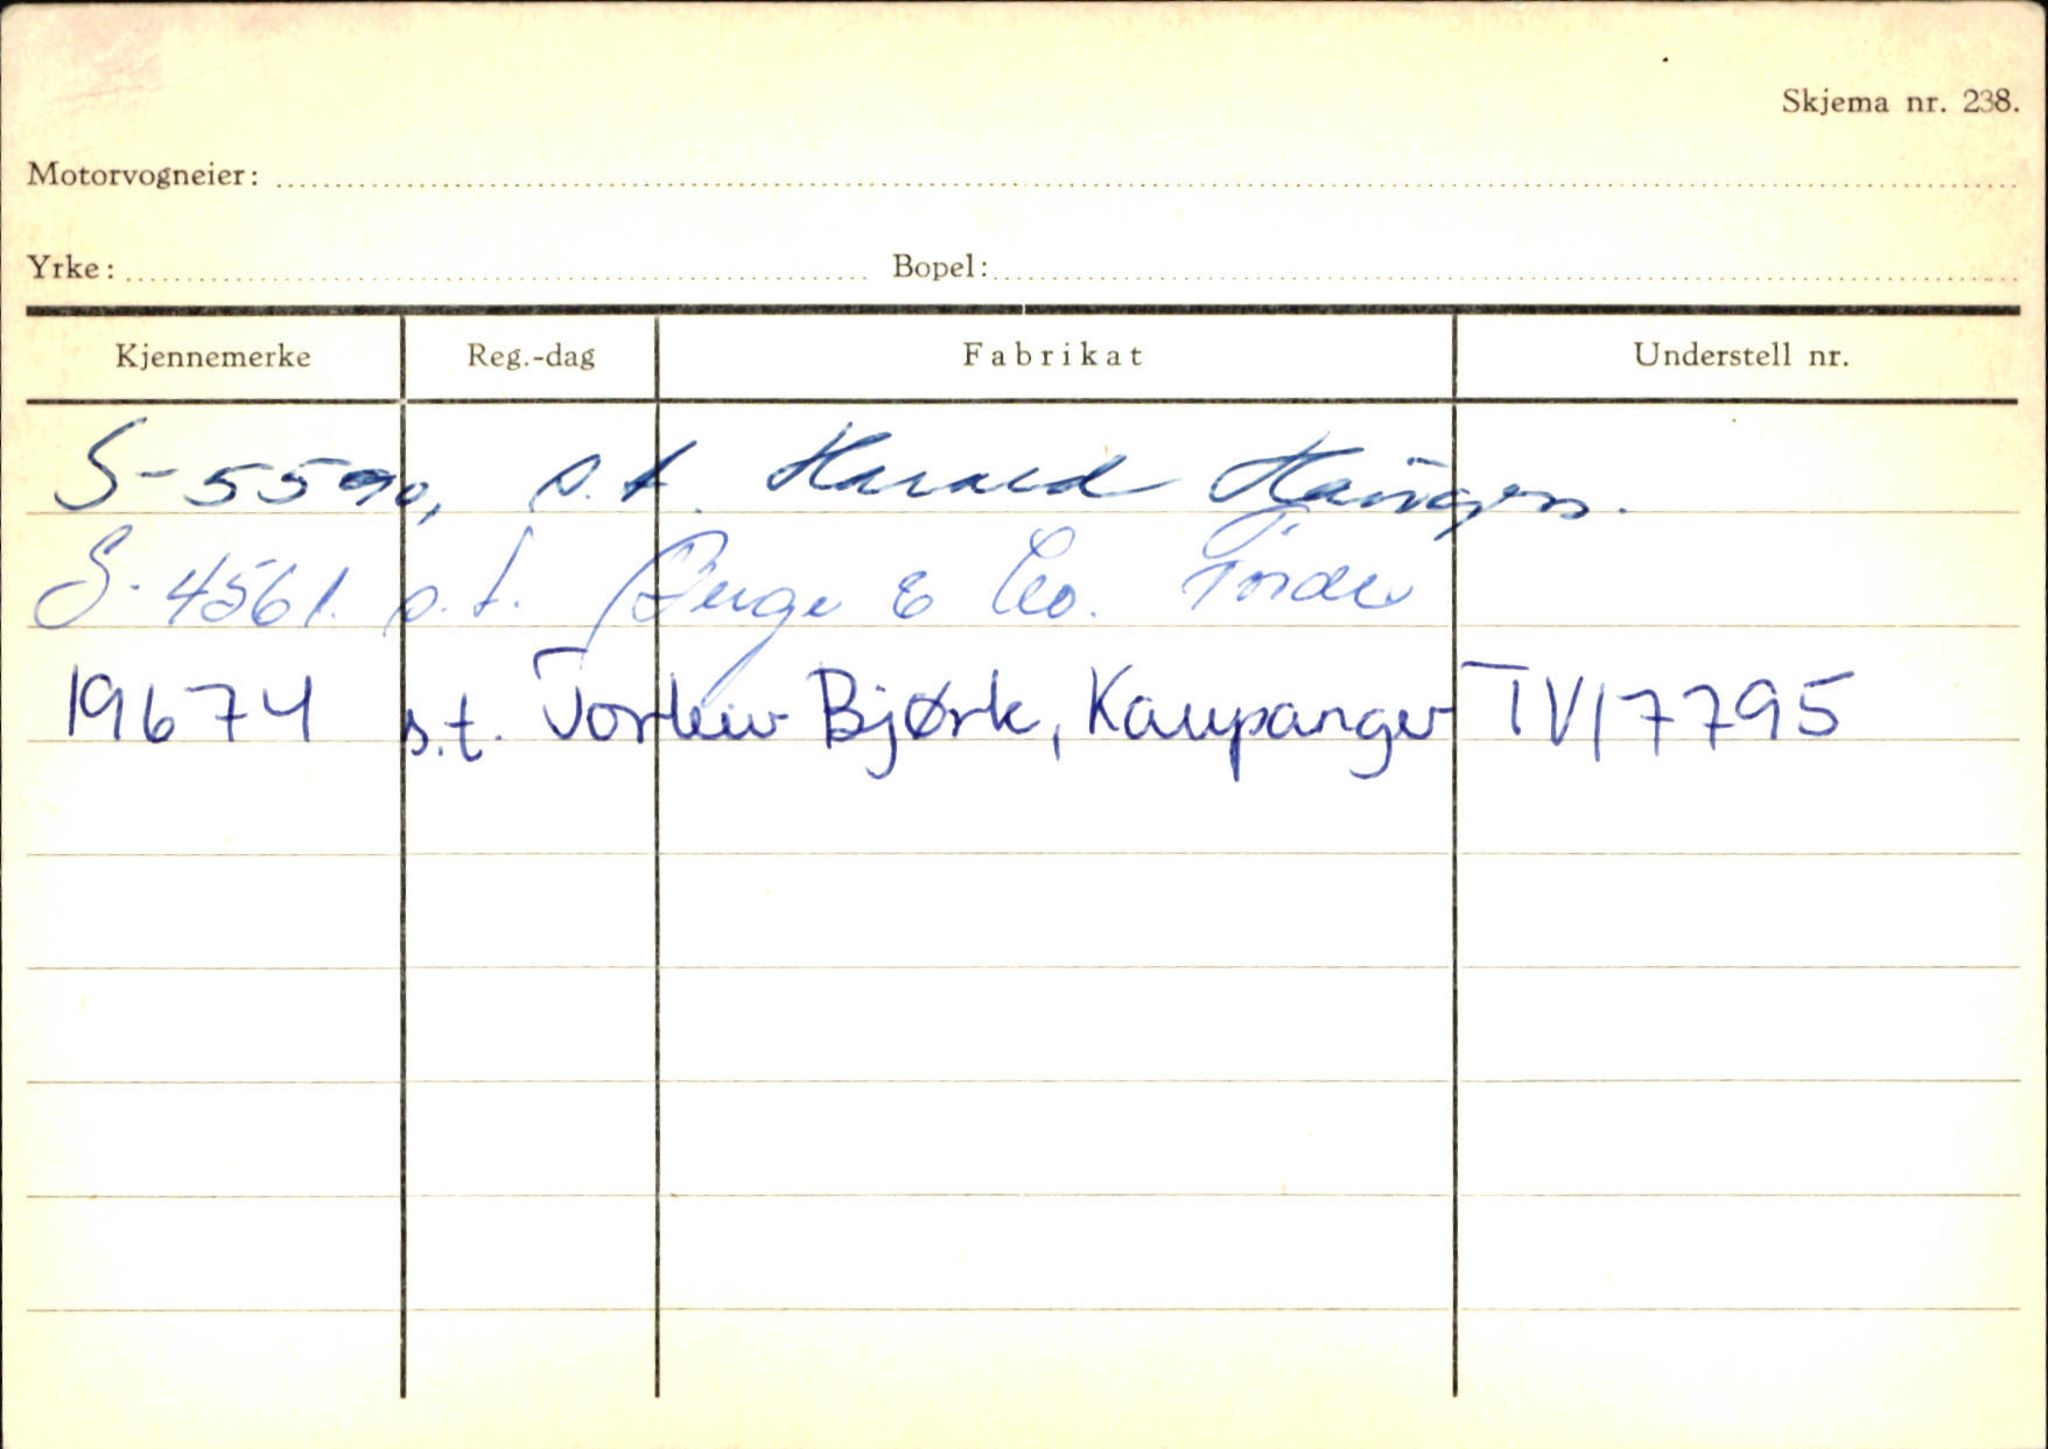 Skjema nr. 238.
Motorvogneier:
Yrke: Bopel:
Kjennemerke Reg.-dag Fabrikat Understell nr.
S-5590, s.t. Harald
S-4561. s.t. Berge & Co. Førde
19674 s.t. Torleiv Bjørk, Kaupanger TV17795